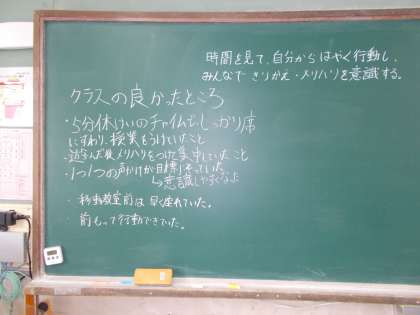 時間を見て、自分からはやく行動し、
みんなで きりかえ・メリハリを意識する。
クラスの良かったところ
・5分休けいのチャイムで、しっかり席
にすわり、授業をうけていたこと
・遊んだ後、メリハリをつけ集中していたこと
・1つ1つの声かけが目標にそっていた
↳意識しやすくなる
・移動教室前は早く座れていた。
・前もって行動できていた。